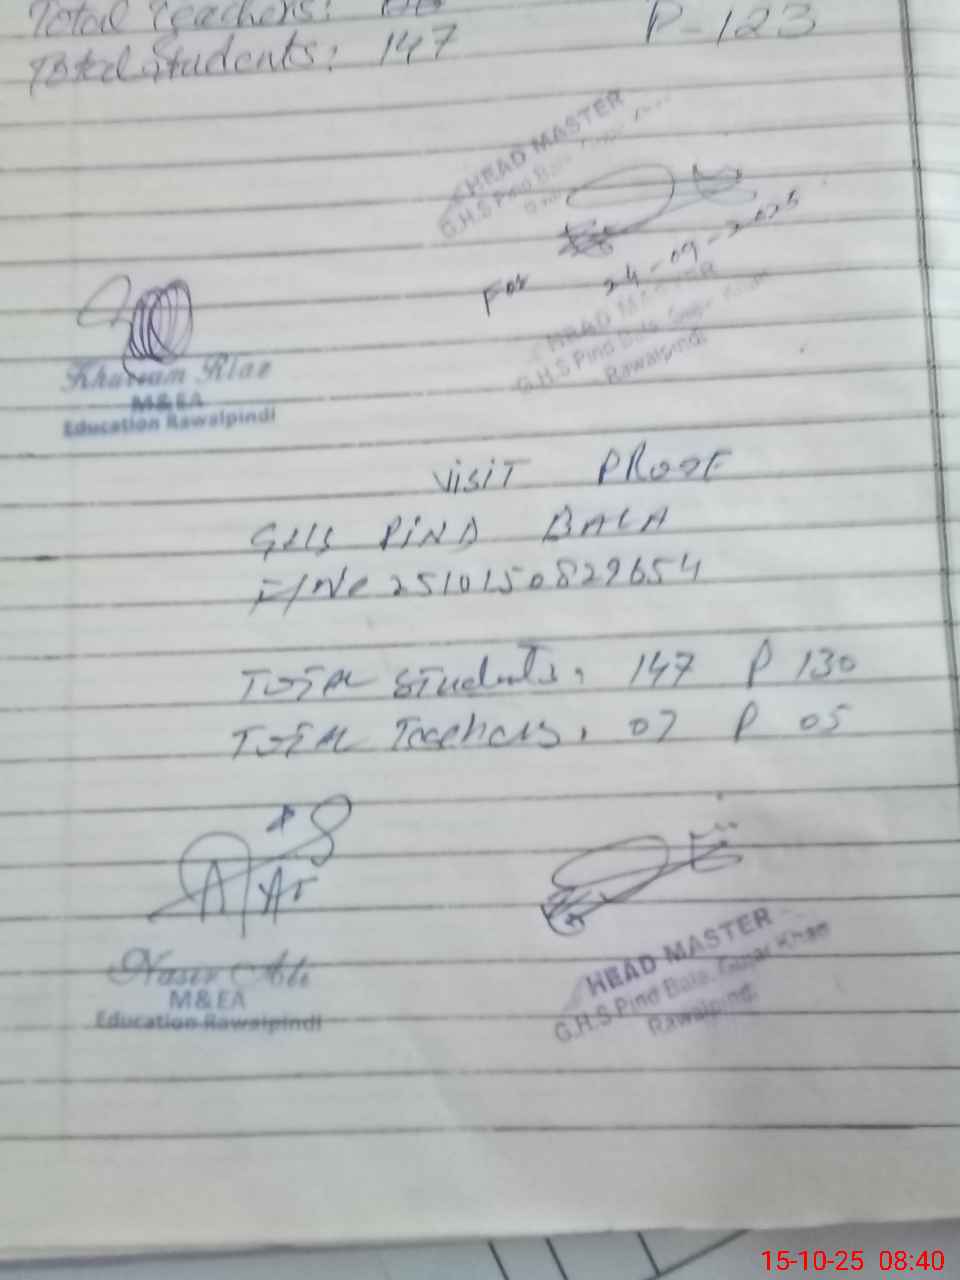 Total Teachers:
Total Students: 147 P-123
HEAD MASTER
G.H.S Pind Bala
For 24-09-2025
HEAD MASTER
G.H.S Pind Bala Gujar Khan
Rawalpindi
Khurram Riaz
M&EA
Education Rawalpindi
VISIT PROOF
GHS PIND BALA
2510150829654
TOTAL Students: 147 P 130
TOTAL Teachers: 07 P 05
Nasir Ali
M&EA
Education Rawalpindi
HEAD MASTER
G.H.S Pind Bala, Gujar Khan
Rawalpindi
15-10-25 08:40